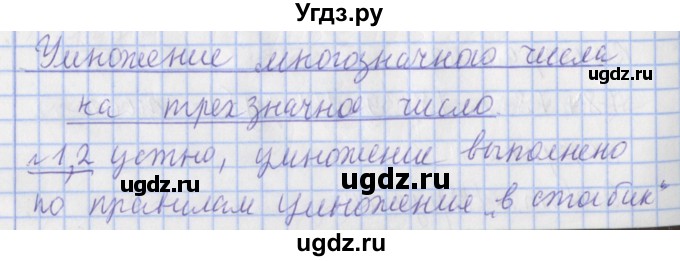 Угдз.ру
Умножение многозначного числа
gdz.ru
на трехзначное число.
ugdz.ru
№1,2 устно, умножение выполнено
ugdz.ru
ugdz.ru
по правилам умножения „в столбик“
ugdz.ru